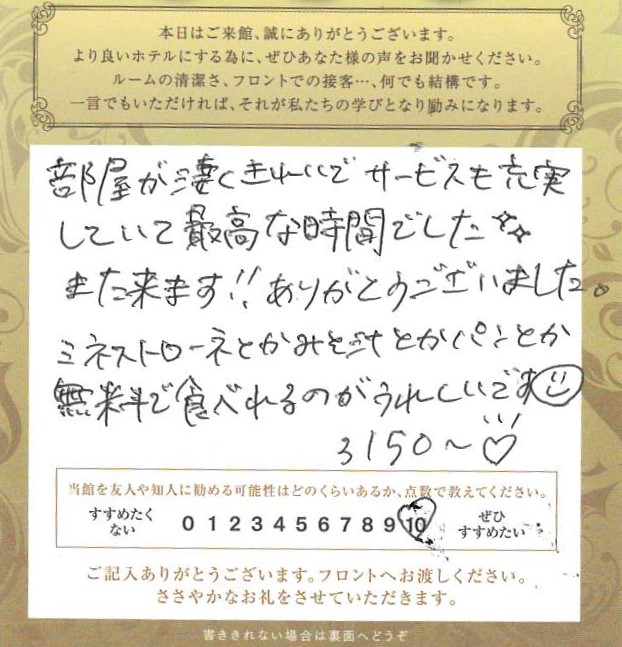 本日はご来館、誠にありがとうございます。
より良いホテルにする為に、ぜひあなた様の声をお聞かせください。
ルームの清潔さ、フロントでの接客…、何でも結構です。
一言でもいただければ、それが私たちの学びとなり励みになります。
部屋が凄くきれいで サービスも充実
していて最高な時間でした✨
また来ます!! ありがとうございました。
ミネストローネとかみそ汁とかパンとか
無料で食べれるのがうれしいです☺
3150〜♡
当館を友人や知人に勧める可能性はどのくらいあるか、点数で教えてください。
すすめたく
ない
0 1 2 3 4 5 6 7 8 9 10
ぜひ
すすめたい
ご記入ありがとうございます。フロントへお渡しください。
ささやかなお礼をさせていただきます。
書ききれない場合は裏面へどうぞ